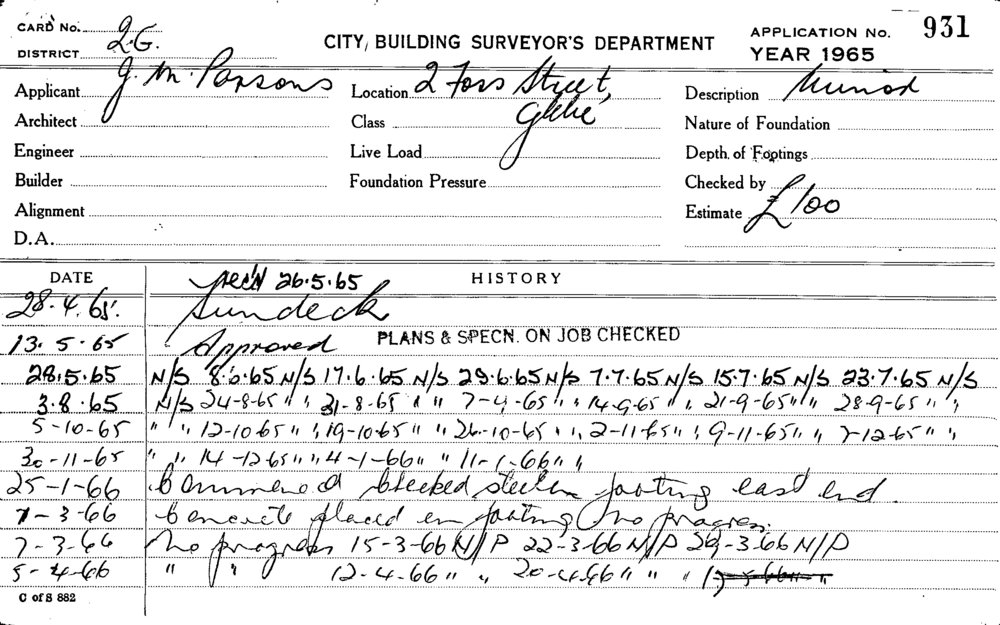 CARD No. 2G. CITY BUILDING SURVEYOR'S DEPARTMENT APPLICATION No. 931
DISTRICT YEAR 1965
Applicant J. M. Parsons Location 2 Fors Street, Glebe Description Minor
Architect Class Nature of Foundation
Engineer Live Load Depth of Footings
Builder Foundation Pressure Checked by
Alignment Estimate £100
D.A.
DATE HISTORY
rec'd 26.5.65
28.4.65. Sundeck
13.5.65 Approved PLANS & SPECN. ON JOB CHECKED
28.5.65 N/S 8.6.65 N/S 17.6.65 N/S 29.6.65 N/S 7.7.65 N/S 15.7.65 N/S 23.7.65 N/S
3.8.65 N/S 24-8-65 " " 31-8-65 " " 7-9-65 " " 14-9-65 " " 21-9-65 " " 28-9-65 " "
5-10-65 " " 12-10-65 " " 19-10-65 " " 26-10-65 " " 2-11-65 " " 9-11-65 " " 7-12-65 " "
30-11-65 " " 14-12-65 " " 4-1-66 " " 11-1-66 " "
25-1-66 Commenced checked steel in footing east end.
1-3-66 Concrete placed in footing no progress.
7-3-66 No progress 15-3-66 N/P 22-3-66 N/P 29-3-66 N/P
5-4-66 " " 12-4-66 " " 20-4-66 " " "
C of S 882